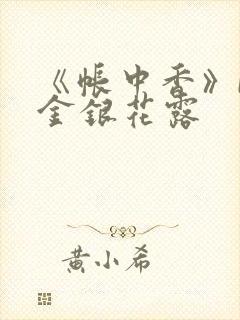 《帐中香》
金银花露
黄小希